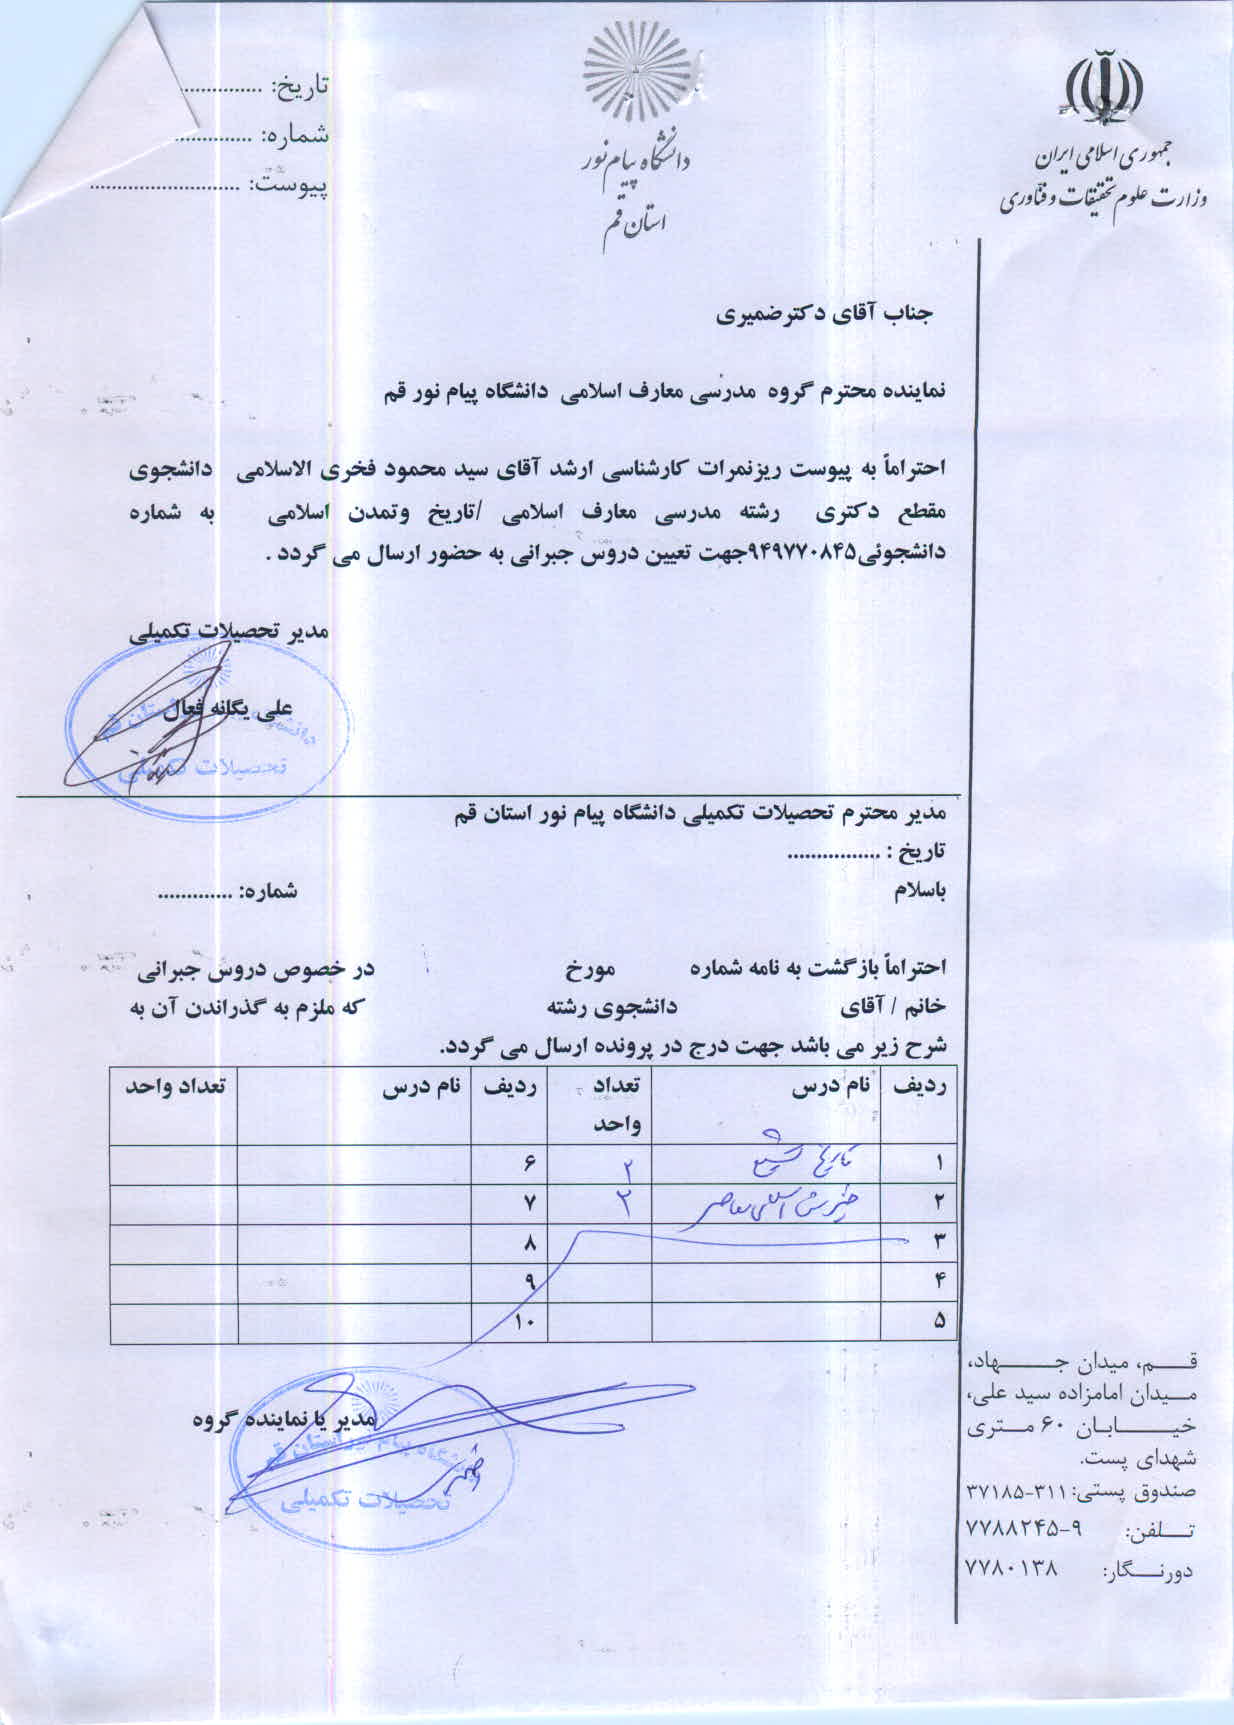 جمهوری اسلامی ایران
وزارت علوم تحقیقات و فنّاوری
دانشگاه پیام نور
استان قم
تاریخ: ..............
شماره: ..............
پیوست: ............................
جناب آقای دکترضمیری
نماینده محترم گروه مدرسی معارف اسلامی دانشگاه پیام نور قم
احتراماً به پیوست ریزنمرات کارشناسی ارشد آقای سید محمود فخری الاسلامی دانشجوی
مقطع دکتری رشته مدرسی معارف اسلامی /تاریخ وتمدن اسلامی به شماره
دانشجوئی۹۴۹۷۷۰۸۴۵جهت تعیین دروس جبرانی به حضور ارسال می گردد .
مدیر تحصیلات تکمیلی
علی یگانه فعال
دانشگاه استان قم
تحصیلات تکمیلی
مدیر محترم تحصیلات تکمیلی دانشگاه پیام نور استان قم
تاریخ : ................
باسلام شماره: .............
احتراماً بازگشت به نامه شماره مورخ در خصوص دروس جبرانی
خانم / آقای دانشجوی رشته که ملزم به گذراندن آن به
شرح زیر می باشد جهت درج در پرونده ارسال می گردد.
ردیف نام درس تعداد واحد ردیف نام درس تعداد واحد
۱ تاریخ تشیع ۲ ۶
۲ اسلامی معاصر ۲ ۷
۳ ۸
۴ ۹
۵ ۱۰
مدیر یا نماینده گروه
دانشگاه پیام نور استان قم
تحصیلات تکمیلی
ضمیری
قم، میدان جهاد،
میدان امامزاده سید علی،
خیابان ۶۰ متری
شهدای پست.
صندوق پستی: ۳۱۱-۳۷۱۸۵
تلفن: ۹-۷۷۸۸۲۴۵
دورنگار: ۷۷۸۰۱۳۸